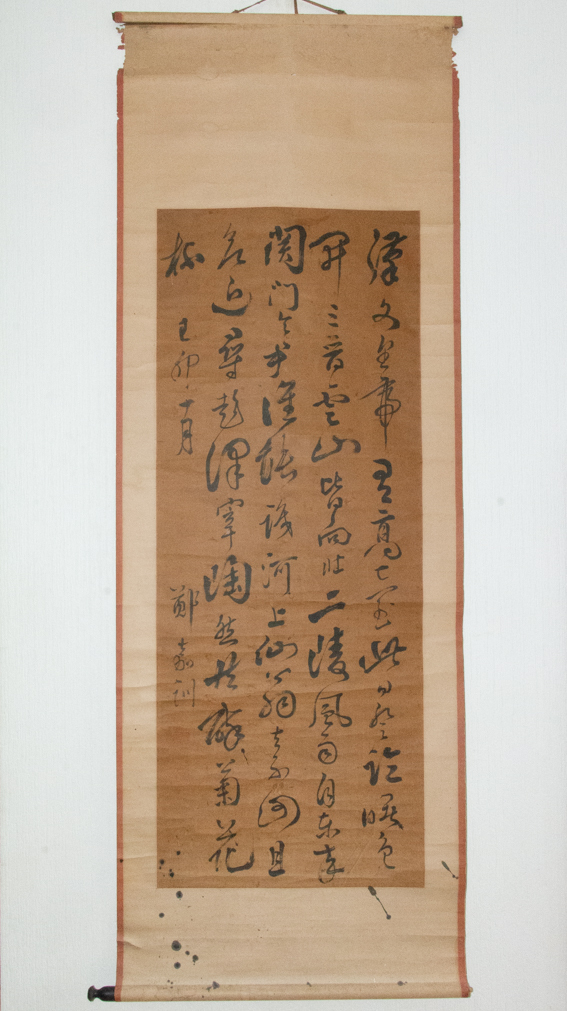 漢文皇帝有高臺此日登臨曙色
開三晉雲山皆向北二陵風雨自東來
関門令尹誰能識河上仙翁去不回且
欲近尋彭澤宰陶然共醉菊花
杯 卯 月 鄭嘉訓